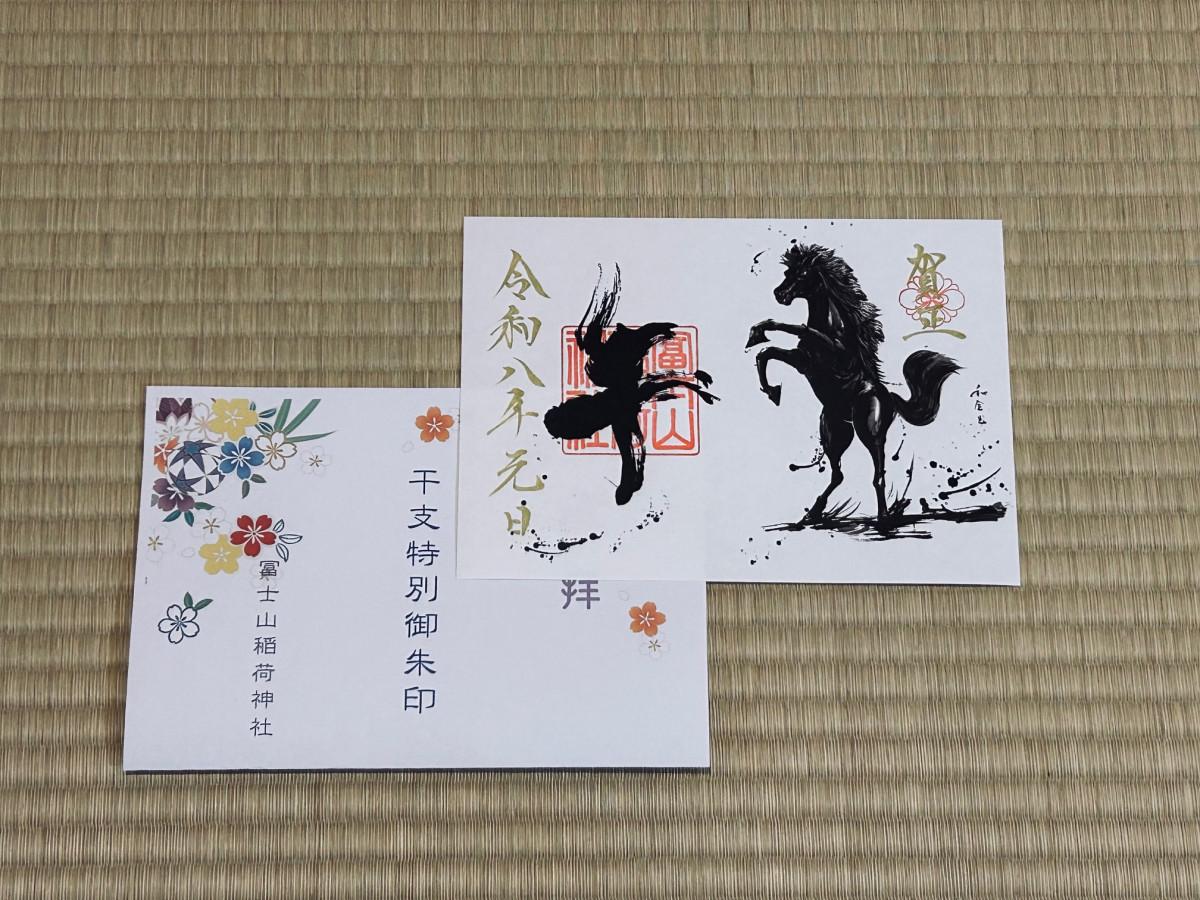 賀正
午
令和八年元日
冨士山稲荷神社
拝
干支特別御朱印
冨士山稲荷神社